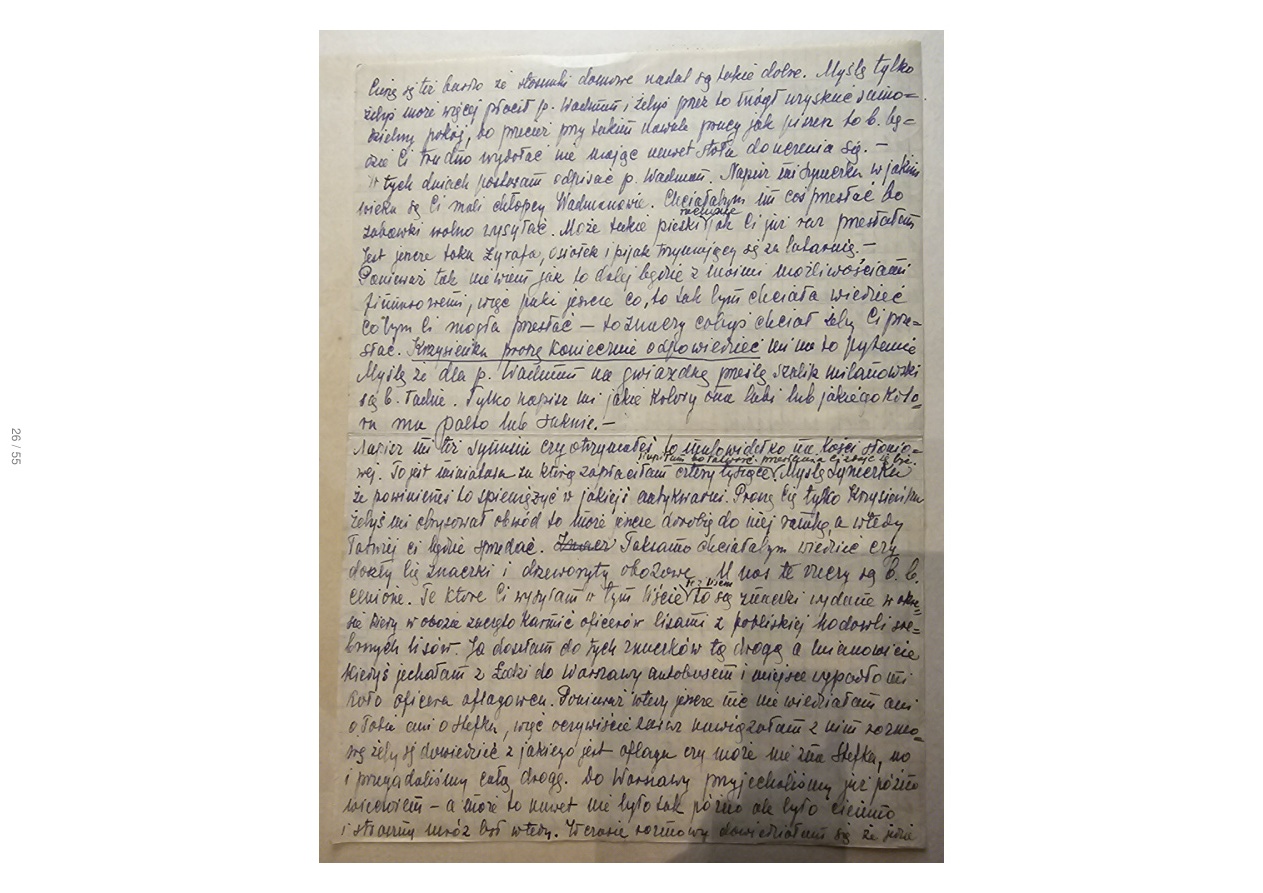 Cieszę się też bardzo że stosunki domowe nadal są takie dobre. Myślę tylko
żebyś może więcej płacił p. Wadman i żebyś przez to mógł uzyskać samo=
dzielny pokój, bo przecież przy takim nawale pracy jak piszesz to b. bę=
dzie Ci trudno wydołać nie mając nawet stołu do uczenia się. –
W tych dniach postaram odpisać p. Wadman. Napisz mi Syneczku w jakim
wieku są Ci mali chłopcy Wadmanowie. Chciałabym im coś przesłać bo
zabawki wolno wysyłać. Może takie pieski ruchome jak Ci już raz przesłałam
Jest jeszcze taka żyrafa, osiołek i pijak trzymający się za latarnię. –
Ponieważ tak nie wiem jak to dalej będzie z moimi możliwościami
finansowemi, więc puki jeszcze co, to tak bym chciała wiedzieć
co bym Ci mogła przesłać – to znaczy cobyś chciał żeby Ci prze=
słać. Krzysieńku proszę koniecznie odpowiedzieć mi na to pytanie
Myślę że dla p. Wadman na gwiazdkę prześlę szalik milanowski
są b. ładne. Tylko napisz mi jakie kolory ona lubi lub jakiego kolo=
ru ma palto lub suknie. –
Napisz mi też Synusiu czy otrzymałeś to malowidełko na kości słonio=
wej. To jest miniatura za którą zapłaciłam cztery tysiące. Myślę Syneczku
że powinieneś to spieniężyć w jakiejś antykwarni. Proszę Cię tylko Krzysieńku
żebyś mi obrysował obwód to może jeszcze dorobię do niej ramkę, a wtedy
łatwiej ci będzie sprzedać. Taksamo chciałabym wiedzieć czy
doszły Cię znaczki i drzeworyty obozowe. U nas te rzeczy są b. b.
cenione. Te które Ci wysyłam w tym liście to są znaczki wydane w okre=
sie kiedy w obozie zaczęto karmić oficerów lisami z pobliskiej hodowli sre=
brnych lisów. Ja doszłam do tych znaczków tą drogą a mianowicie
kiedyś jechałam z Łodzi do Warszawy autobusem i miejsce wypadło mi
koło oficera oflagowca. Ponieważ wtedy jeszcze nic nie wiedziałam ani
o Tobie ani o Stefku, więc oczywiście zaraz nawiązałam z nim rozmo=
wę żeby się dowiedzieć z jakiego jest oflagu czy może nie zna Stefka, no
i przegadaliśmy całą drogę. Do Warszawy przyjechaliśmy już późno
wieczorem – a może to nawet nie było tak późno ale było ciemno
i straszny mróz był wtedy. W czasie rozmowy dowiedziałam się że jedzie